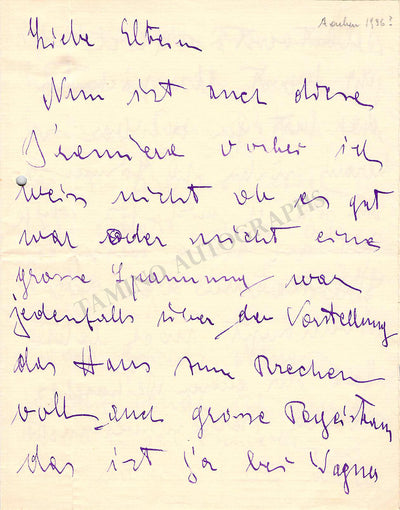 Aachen 1936?
Liebe Eltern
Nun ist auch diese
Premiere vorbei ich
weiss nicht ob es gut
war oder nicht eine
grosse Spannung war
jedenfalls über der Vorstellung
das Haus zum Brechen
voll und grosse Begeisterung
das ist ja bei Wagner
TAMINO AUTOGRAPHS